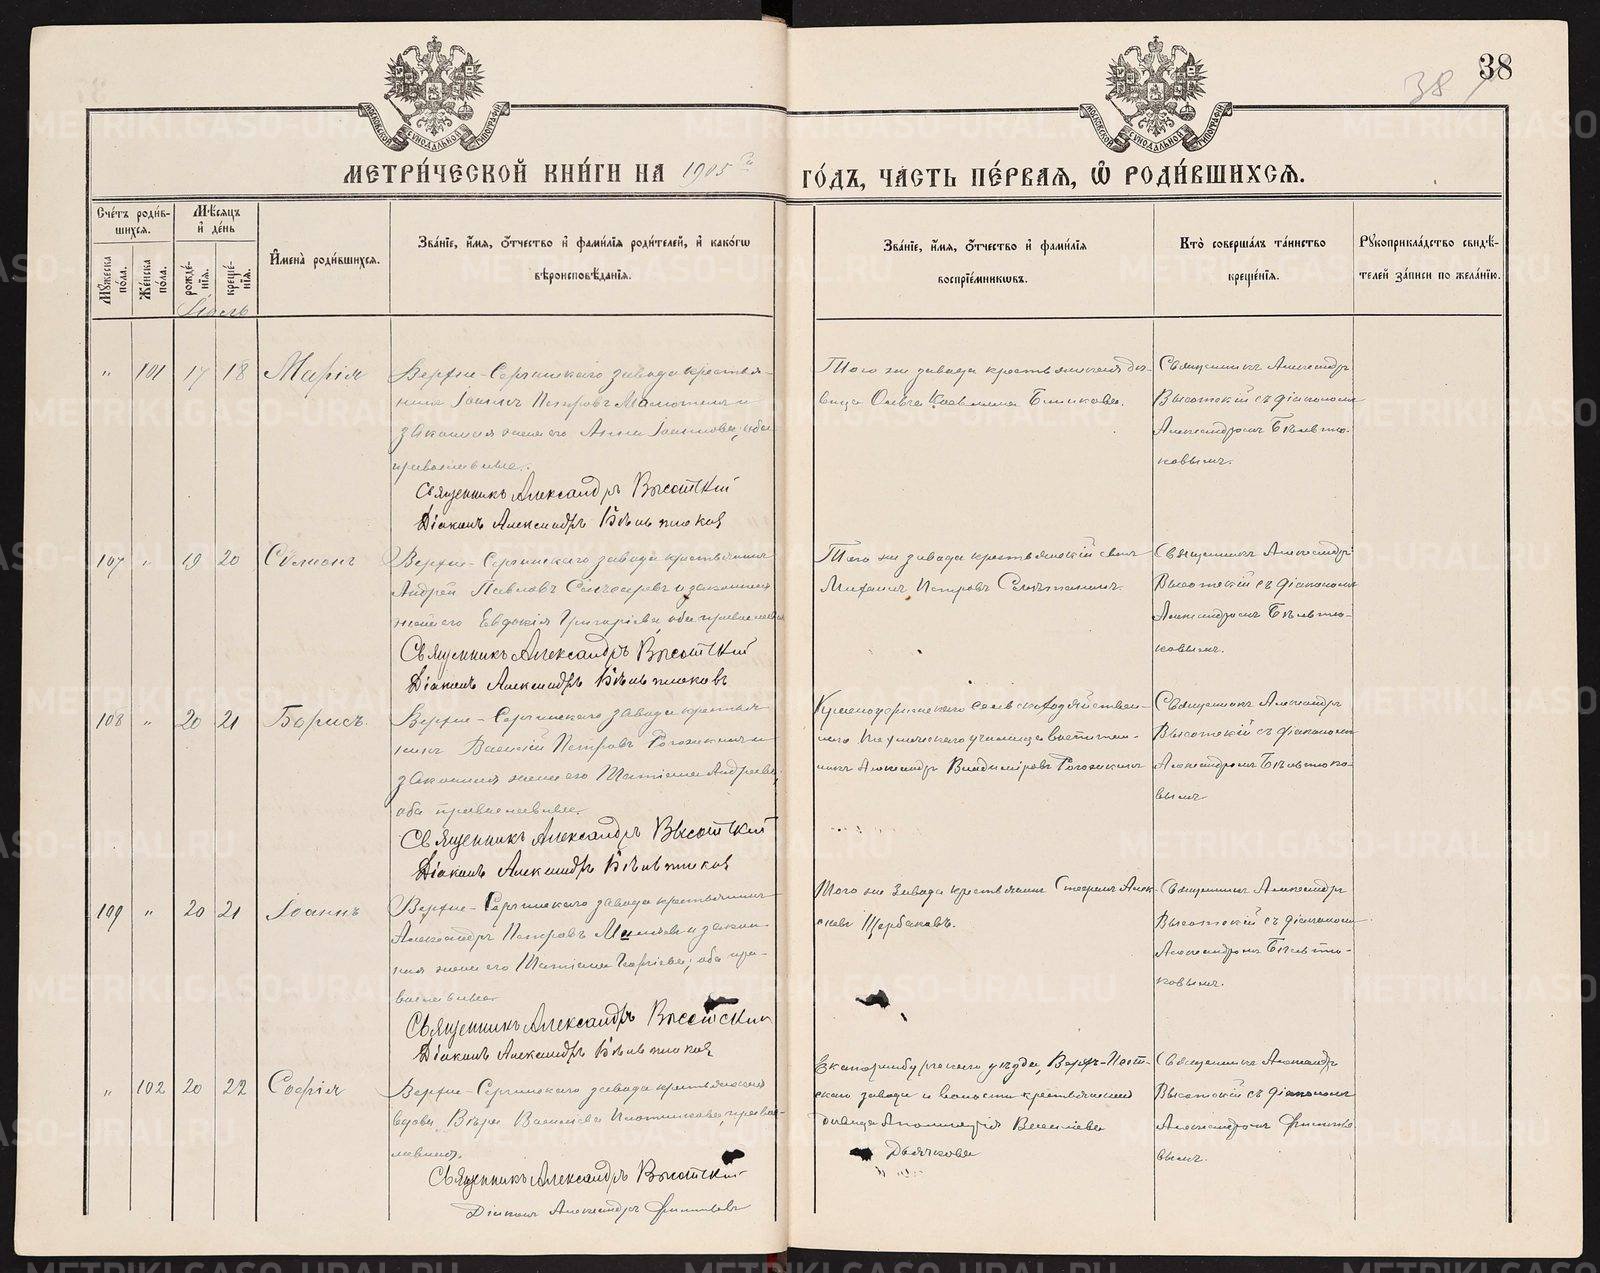 38
38
МОСКОВСКОЙ СѴНОДАЛЬНОЙ ТИПОГРАФІИ
МОСКОВСКОЙ СѴНОДАЛЬНОЙ ТИПОГРАФІИ
МЕТРИ́ЧЕСКОЙ КНИ́ГИ НА 1905 й ГО́ДЪ, ЧА́СТЬ ПЕ́РВАѦ, Ѽ РОДИ́ВШИХСѦ.
Сче́тъ роди́в-
шихсѧ.
Мѣ́сѧцъ
и҆ де́нь
Мꙋ́жеска по́ла.
Же́нска по́ла.
рожде́-нїѧ.
креще́-нїѧ.
И҆мена̀ роди́вшихсѧ.
Зва́нїе, и҆́мѧ, ѻ҆́тчество и҆ фами́лїѧ роди́телей, и҆ како́гѡ
вѣроисповѣ́данїѧ.
Зва́нїе, и҆́мѧ, ѻ҆́тчество и҆ фами́лїѧ
воспрїе́мникѡвъ.
Кто̀ соверша́лъ та́инство
креще́нїѧ.
Рꙋкоприкла́дство свидѣ́-
телей за́писи по жела́нїю.
Іюль
" 101 17 18 Марія
Верхне-Сергинскаго завода крестья-
нинъ Іоаннъ Петровъ и
законная жена его Анна Іоаннова, оба
православные.
Священникъ Александръ Высотскій
Діаконъ Александръ Бѣльтюков
Того же завода крестьянская дѣ-
вица Ольга
Священникъ Александръ
Высотскій съ діакономъ
Александромъ Бѣльтю-
ковымъ.
107 " 19 20 Сѵмеонъ
Верхне-Сергинскаго завода крестьянинъ
Андрей Павловъ и законная
жена его Евдокія Григоріева, оба православные
Священникъ Александръ Высотскій
Діаконъ Александръ Бѣльтюковъ
Того же завода крестьянскій сынъ
Михаилъ Петровъ
Священникъ Александръ
Высотскій съ діакономъ
Александромъ Бѣльтю-
ковымъ.
108 " 20 21 Борисъ.
Верхне-Сергинскаго завода крестья-
нинъ Василій Петровъ Рогожкинъ и
законная жена его Татіана Андреева,
оба православные.
Священникъ Александръ Высотскій
Діаконъ Александръ Бѣльтюков
Красноуфимскаго сельскохозяйствен-
наго училища воспитан-
никъ Александръ Владиміровъ Рогожкинъ
Священникъ Александръ
Высотскій съ діакономъ
Александромъ Бѣльтюко-
вымъ.
109 " 20 21 Іоаннъ
Верхне-Сергинскаго завода крестьянинъ
Александръ Петровъ и закон-
ная жена его Татіана Георгіева, оба пра-
вославные.
Священникъ Александръ Высотскій
Діаконъ Александръ Бѣльтюков
Того же завода крестьянинъ Стефанъ Алек-
сѣевъ Щербаковъ.
Священникъ Александръ
Высотскій съ діакономъ
Александромъ Бѣльтю-
ковымъ.
" 102 20 22 Софія
Верхне-Сергинскаго завода крестьянская
вдова, Вѣра Васильева Плотникова, право-
славная.
Священникъ Александръ Высотскій
Діаконъ Александръ Филипповъ
Екатеринбургскаго уѣзда,
скаго завода и волости крестьянская
дѣвица Васильева
Дьячкова
Священникъ Александръ
Высотскій съ діакономъ
Александромъ Филиппо-
вымъ.
METRIKI.GASO-URAL.RU